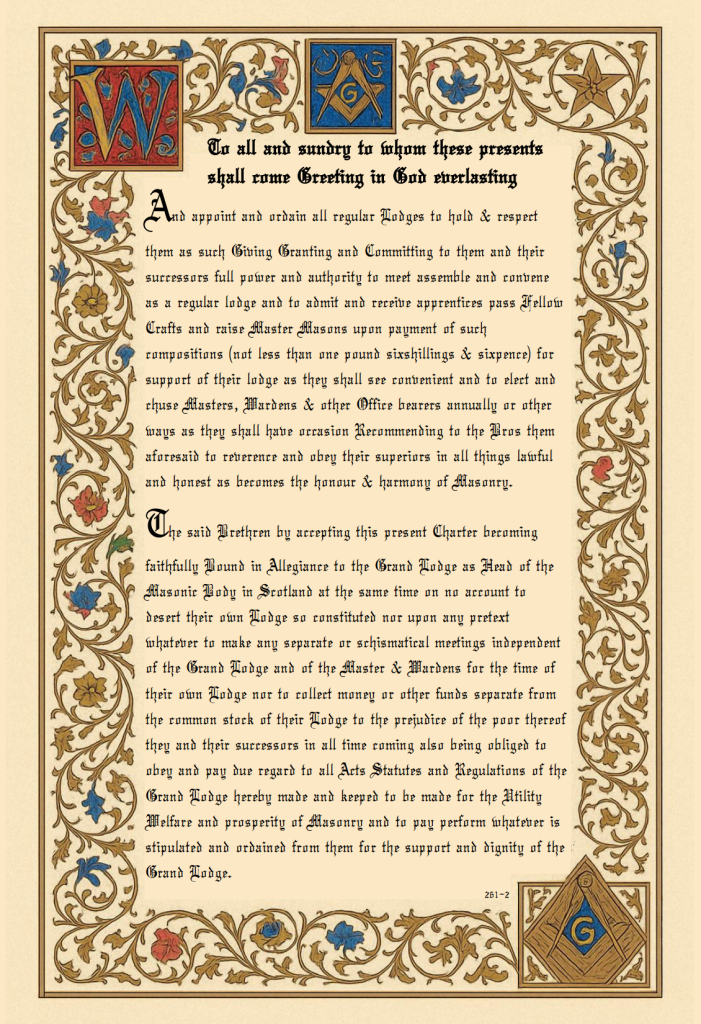 W
G
To all and sundry to whom these presents
shall come Greeting in God everlasting
And appoint and ordain all regular Lodges to hold & respect
them as such Giving Granting and Committing to them and their
successors full power and authority to meet assemble and convene
as a regular lodge and to admit and receive apprentices pass Fellow
Crafts and raise Master Masons upon payment of such
compositions (not less than one pound sixshillings & sixpence) for
support of their lodge as they shall see convenient and to elect and
chuse Masters, Wardens & other Office bearers annually or other
ways as they shall have occasion Recommending to the Bros them
aforesaid to reverence and obey their superiors in all things lawful
and honest as becomes the honour & harmony of Masonry.
The said Brethren by accepting this present Charter becoming
faithfully Bound in Allegiance to the Grand Lodge as Head of the
Masonic Body in Scotland at the same time on no account to
desert their own Lodge so constituted nor upon any pretext
whatever to make any separate or schismatical meetings independent
of the Grand Lodge and of the Master & Wardens for the time of
their own Lodge nor to collect money or other funds separate from
the common stock of their Lodge to the prejudice of the poor thereof
they and their successors in all time coming also being obliged to
obey and pay due regard to all Acts Statutes and Regulations of the
Grand Lodge hereby made and keeped to be made for the Utility
Welfare and prosperity of Masonry and to pay perform whatever is
stipulated and ordained from them for the support and dignity of the
Grand Lodge.
281-2
G